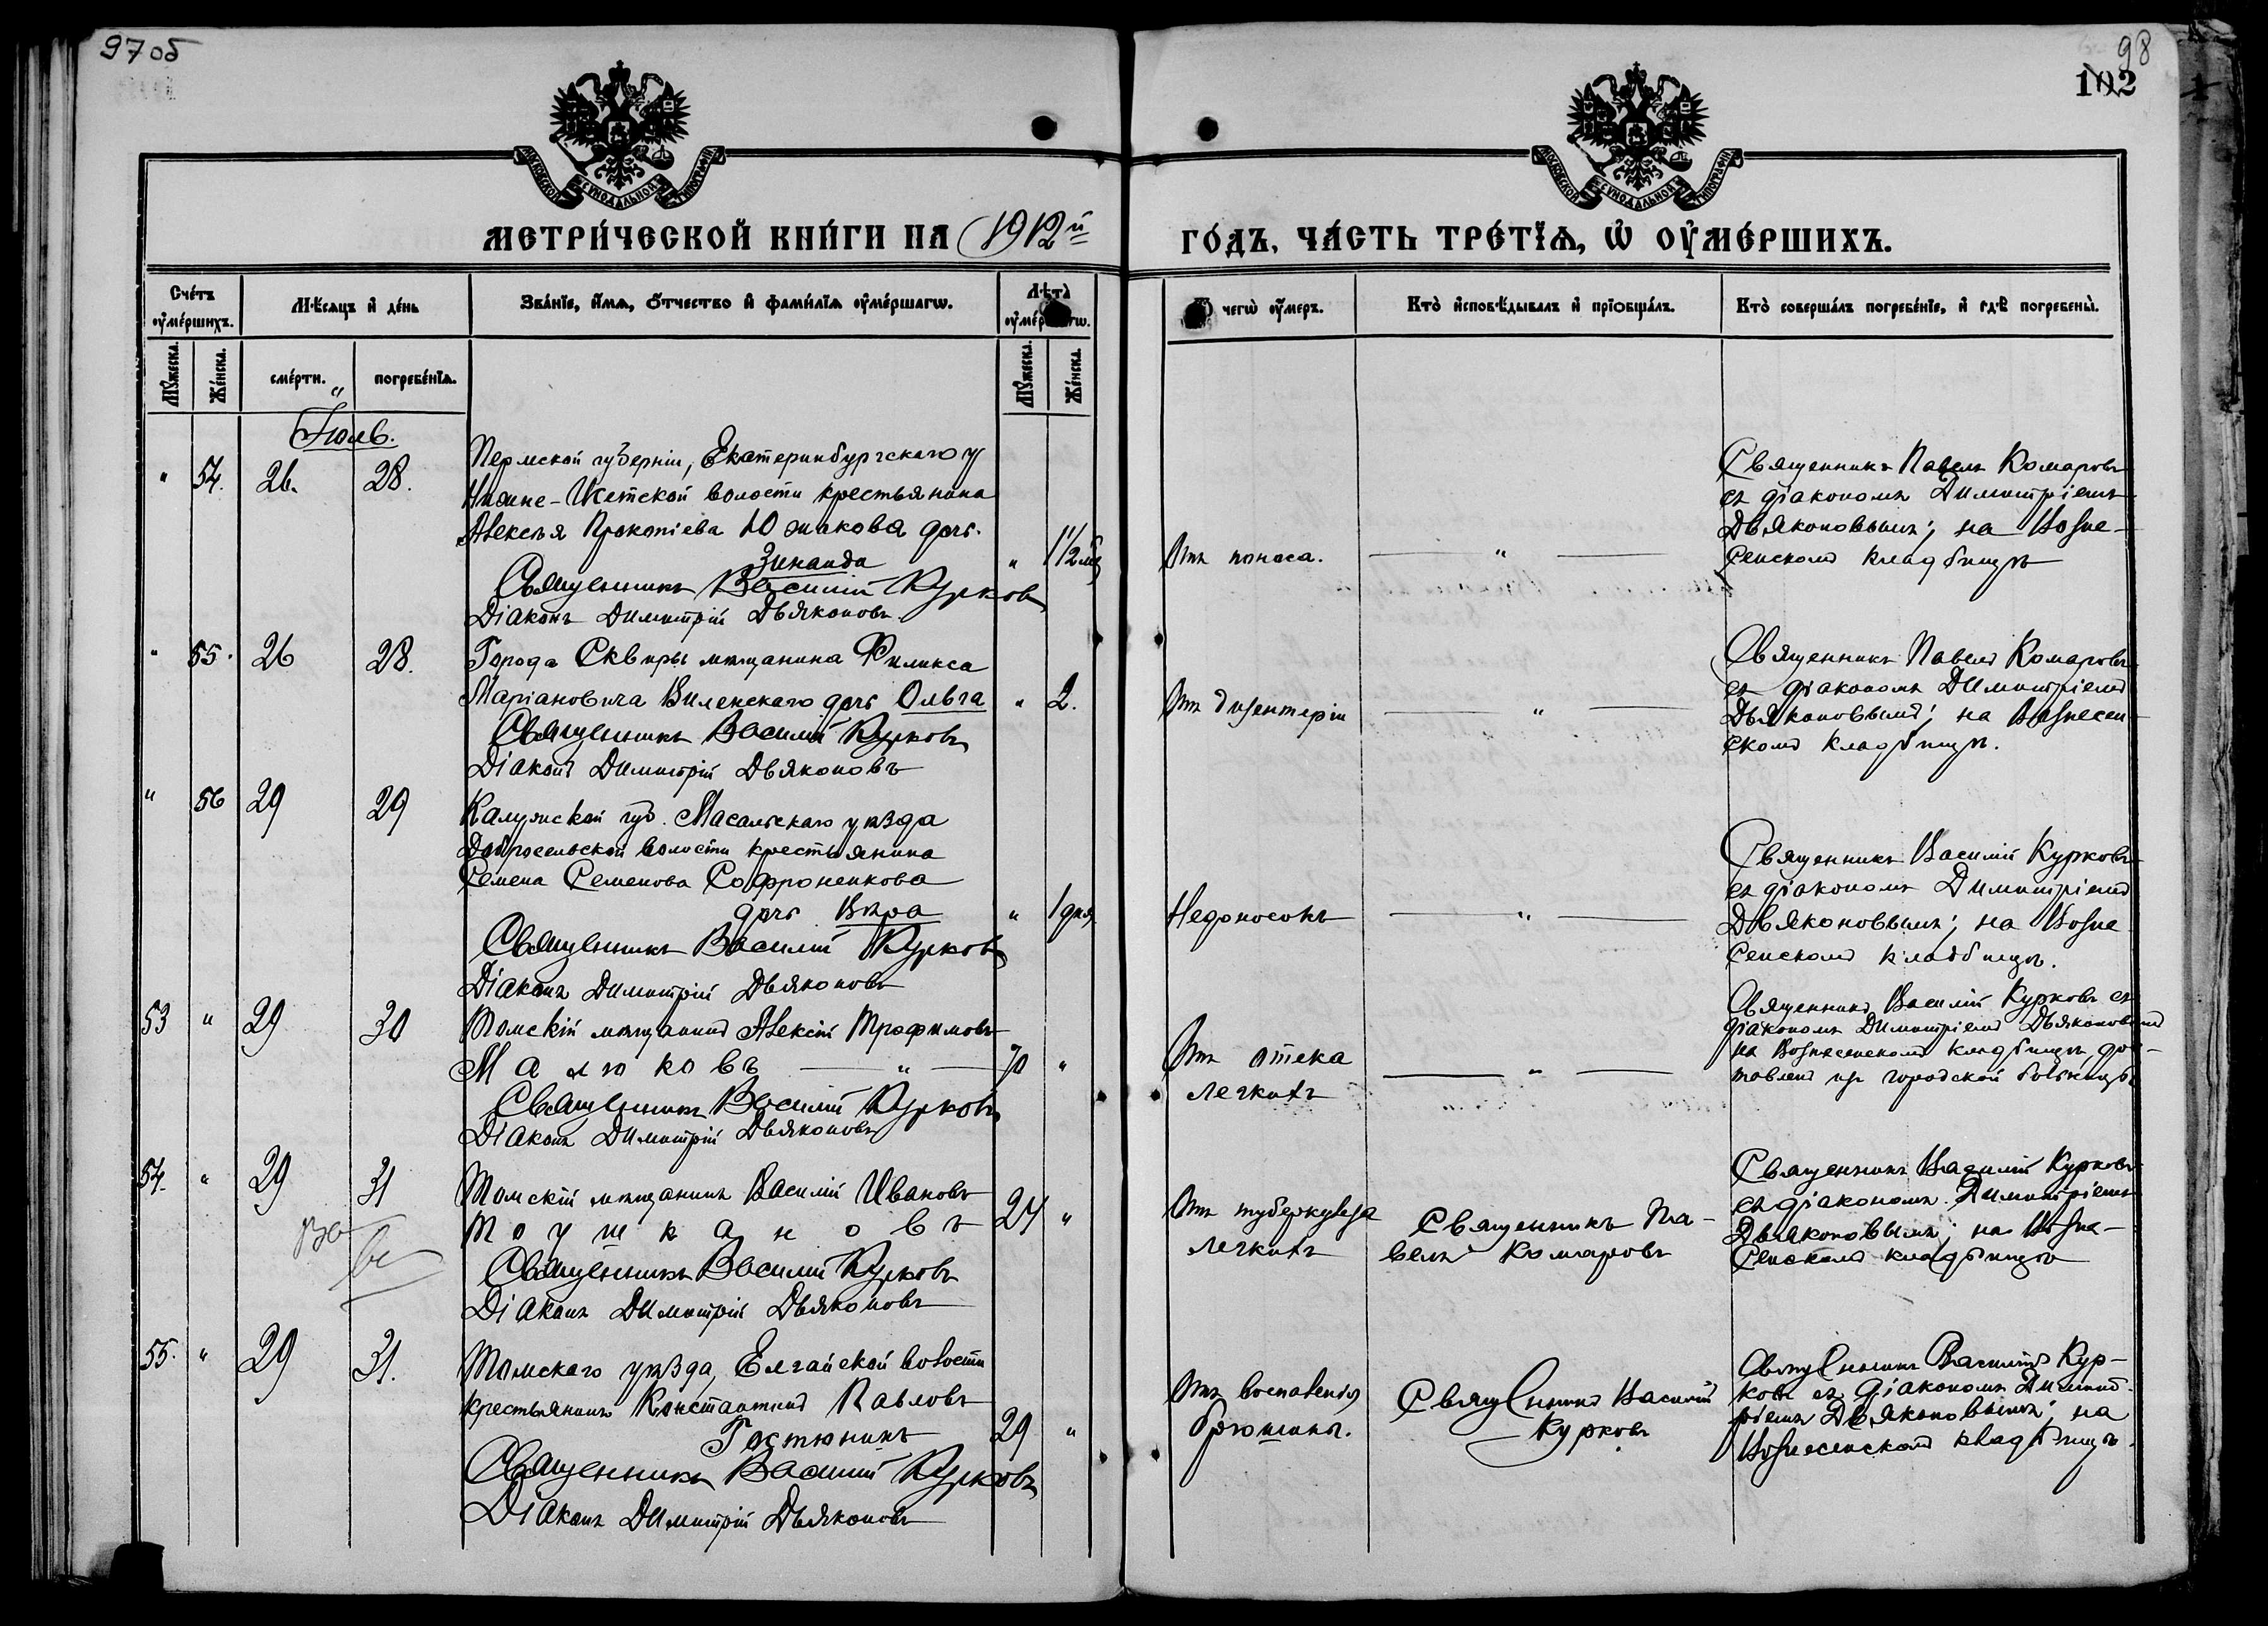 97 об
98
102
МОСКОВСКОЙ СУНОДАЛЬНОЙ ТИПОГРАФІИ
МОСКОВСКОЙ СУНОДАЛЬНОЙ ТИПОГРАФІИ
МЕТРИ́ЧЕСКОЙ КНИ́ГИ НА 1912й
ГО́ДЪ, ЧА́СТЬ ТРЕ́ТЇѦ, Ѡ҆ ОУ҆МЕ́РШИХЪ.
Сче́тъ оу҆ме́ршихъ.
Мѣсяцъ и҆ де́нь
Зва́нїе, и҆́мѧ, ѻ҆́тчество и҆ фами́лїѧ оу҆ме́ршагѡ.
Лѣта̀ оу҆ме́р гѡ.
чегѡ̀ оу҆́меръ.
Кто̀ и҆сповѣ́дывалъ и҆ прїобща́лъ.
Кто̀ соверша́лъ погребе́нїе, и҆ гдѣ̀ погребены̀.
Мꙋ́жеска.
Же́нска.
сме́рти.
погребе́нїѧ.
Мꙋ́жеска.
Же́нска.
Іюль.
" 54. 26. 28.
Пермской губерніи, Екатеринбургскаго у
Нижне-Исетской волости крестьянина
Алексѣя Прокопіева Южакова дочь
Зинаида " 1½ мѣ
Священникъ Василій Курковъ
Діаконъ Димитрій Дьяконовъ.
Отъ поноса. "
Священникъ Павелъ Комаровъ
съ діакономъ Димитріемъ
Дьяконовымъ; на Возне-
сенскомъ кладбищѣ
" 55. 26 28.
Города Сквиры мѣщанина Филикса
Маріановича Виленскаго дочь Ольга " 2.
Священникъ Василій Курковъ
Діаконъ Димитрій Дьяконовъ
Отъ дизентеріи "
Священникъ Павелъ Комаровъ
съ діакономъ Димитріемъ
Дьяконовымъ; на Вознесен-
скомъ кладбищѣ.
" 56 29 29
Калужской губ. Масальскаго уѣзда
Добросельской волости крестьянина
Семена Семенова Софроненкова
дочь Вѣра " 1 дня
Священникъ Василій Курковъ
Діаконъ Димитрій Дьяконовъ
Недоносокъ "
Священникъ Василій Курковъ
съ діакономъ Димитріемъ
Дьяконовымъ; на Возне
сенскомъ кладбищѣ.
53 " 29 30
Томскій мѣщанинъ Алексѣй Трофимовъ
Малюковъ " 70 "
Священникъ Василій Курковъ
Діаконъ Димитрій Дьяконовъ
Отъ отека
легкихъ "
Священникъ Василій Курковъ съ
діакономъ Димитріемъ Дьяконовымъ
на Вознесенскомъ кладбищѣ, дос-
тавленъ изъ городской больницы
54. " 29 31
Томскій мѣщанинъ Василій Ивановъ
Тоушкановъ 24 "
Священникъ Василій Курковъ
Діаконъ Димитрій Дьяконовъ
Отъ туберкулеза
легкихъ
Священникъ Па-
велъ Комаровъ
Священникъ Василій Курковъ
съ діакономъ Димитріемъ
Дьяконовымъ; на Возне-
сенскомъ кладбищѣ
55. " 29 31.
Томскаго уѣзда, Елгайской волости
крестьянинъ Константинъ Павловъ
Гостюнинъ 29 "
Священникъ Василій Курковъ
Діаконъ Димитрій Дьяконовъ
Отъ воспаленія
брюшины.
Священникъ Василій
Курковъ
Священникъ Василій Кур-
ковъ съ діакономъ Димит-
ріемъ Дьяконовымъ; на
Вознесенскомъ кладбищѣ.